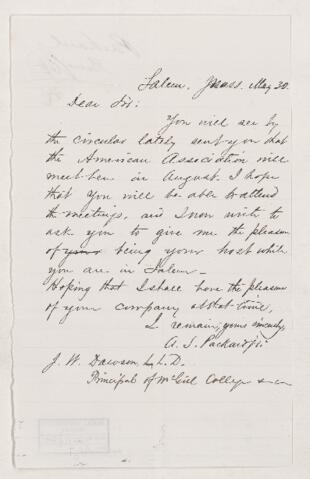 Salem, Mass. May 30.
Dear Sir:
You will see by
the circular lately sent you that
the American Association will
meet here in August. I hope
that you will be able to attend
the meetings, and I now write to
ask you to give me the pleasure
of your being your host while
you are in Salem.
Hoping that I shall have the pleasure
of your company at that time,
I remain, yours sincerely,
A. S. Packard Jr.
J. W. Dawson, L.L.D.
Principal of McGill College